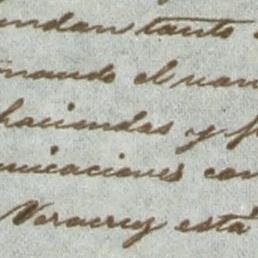 undan tanto
mando el
haciendas y
unicaciones con
Veracruz está